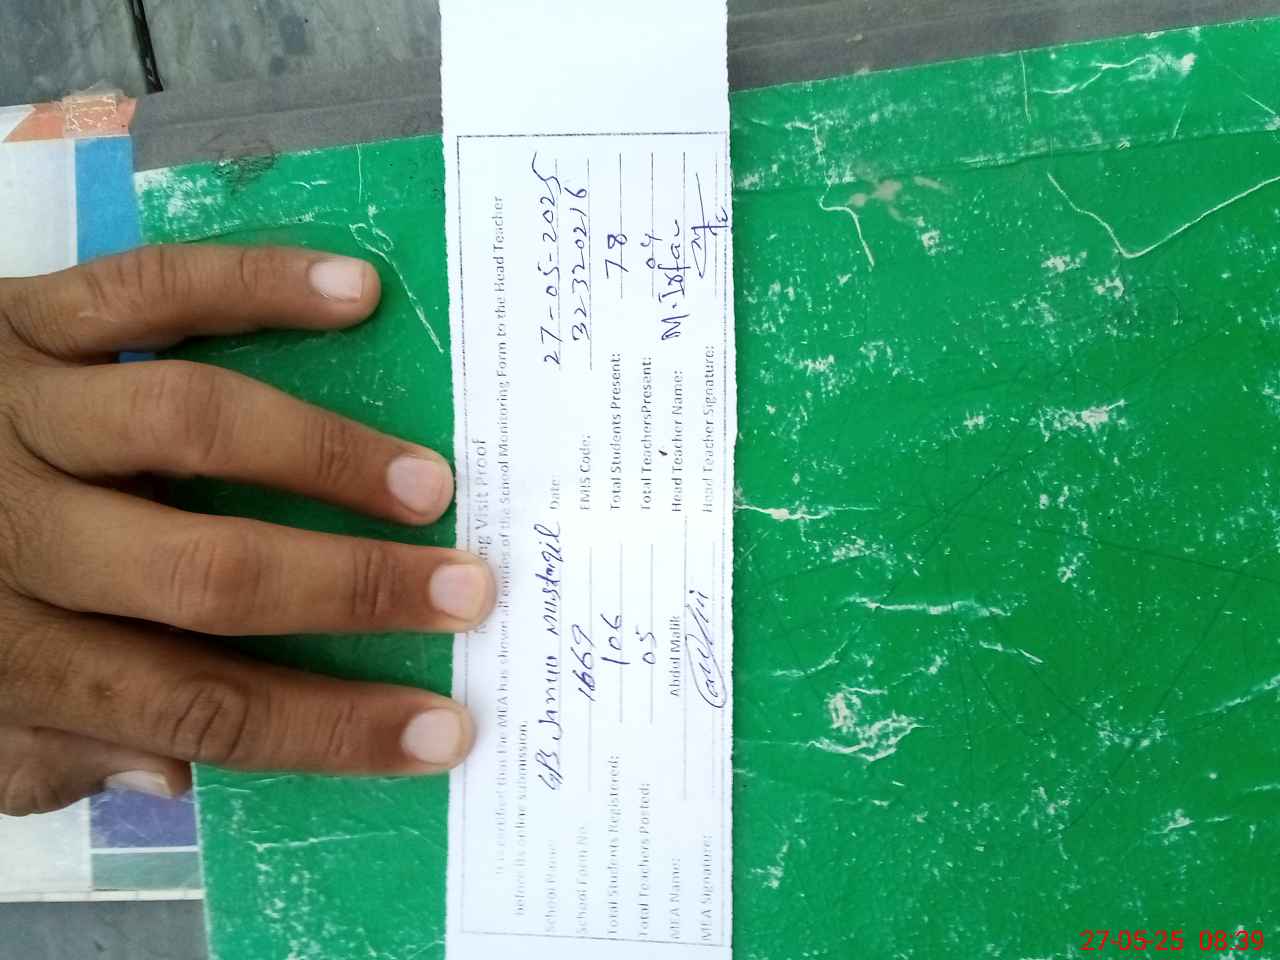 ng Visit Proof
It is certified that the MEA has shown all entries of the School Monitoring Form to the Head Teacher
before its online submission.
School Name: GPS Date: 27-05-2025
School Form No. 1669 EMIS Code: 32320216
Total Students Registered: 106 Total Students Present: 78
Total Teachers Posted: 05 Total TeachersPresent: 04
MEA Name: Abdul Malik Head Teacher Name: M.
MEA Signature: Head Teacher Signature:
27-05-25 08:39